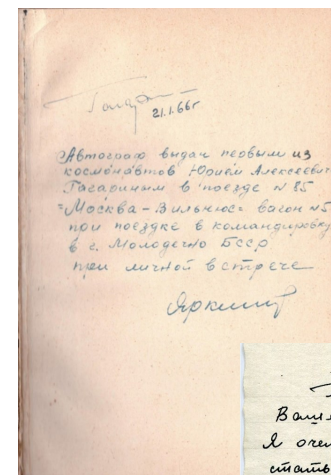 21.1.66г
Автограф выдан первым из
космонавтов Юрием Алексеевич
Гагариным в поезде № 85
"Москва-Вильнюс" вагон №5
при поездке в командировку
в г. Молодечно БССР
при личной встрече
Я оче
стать